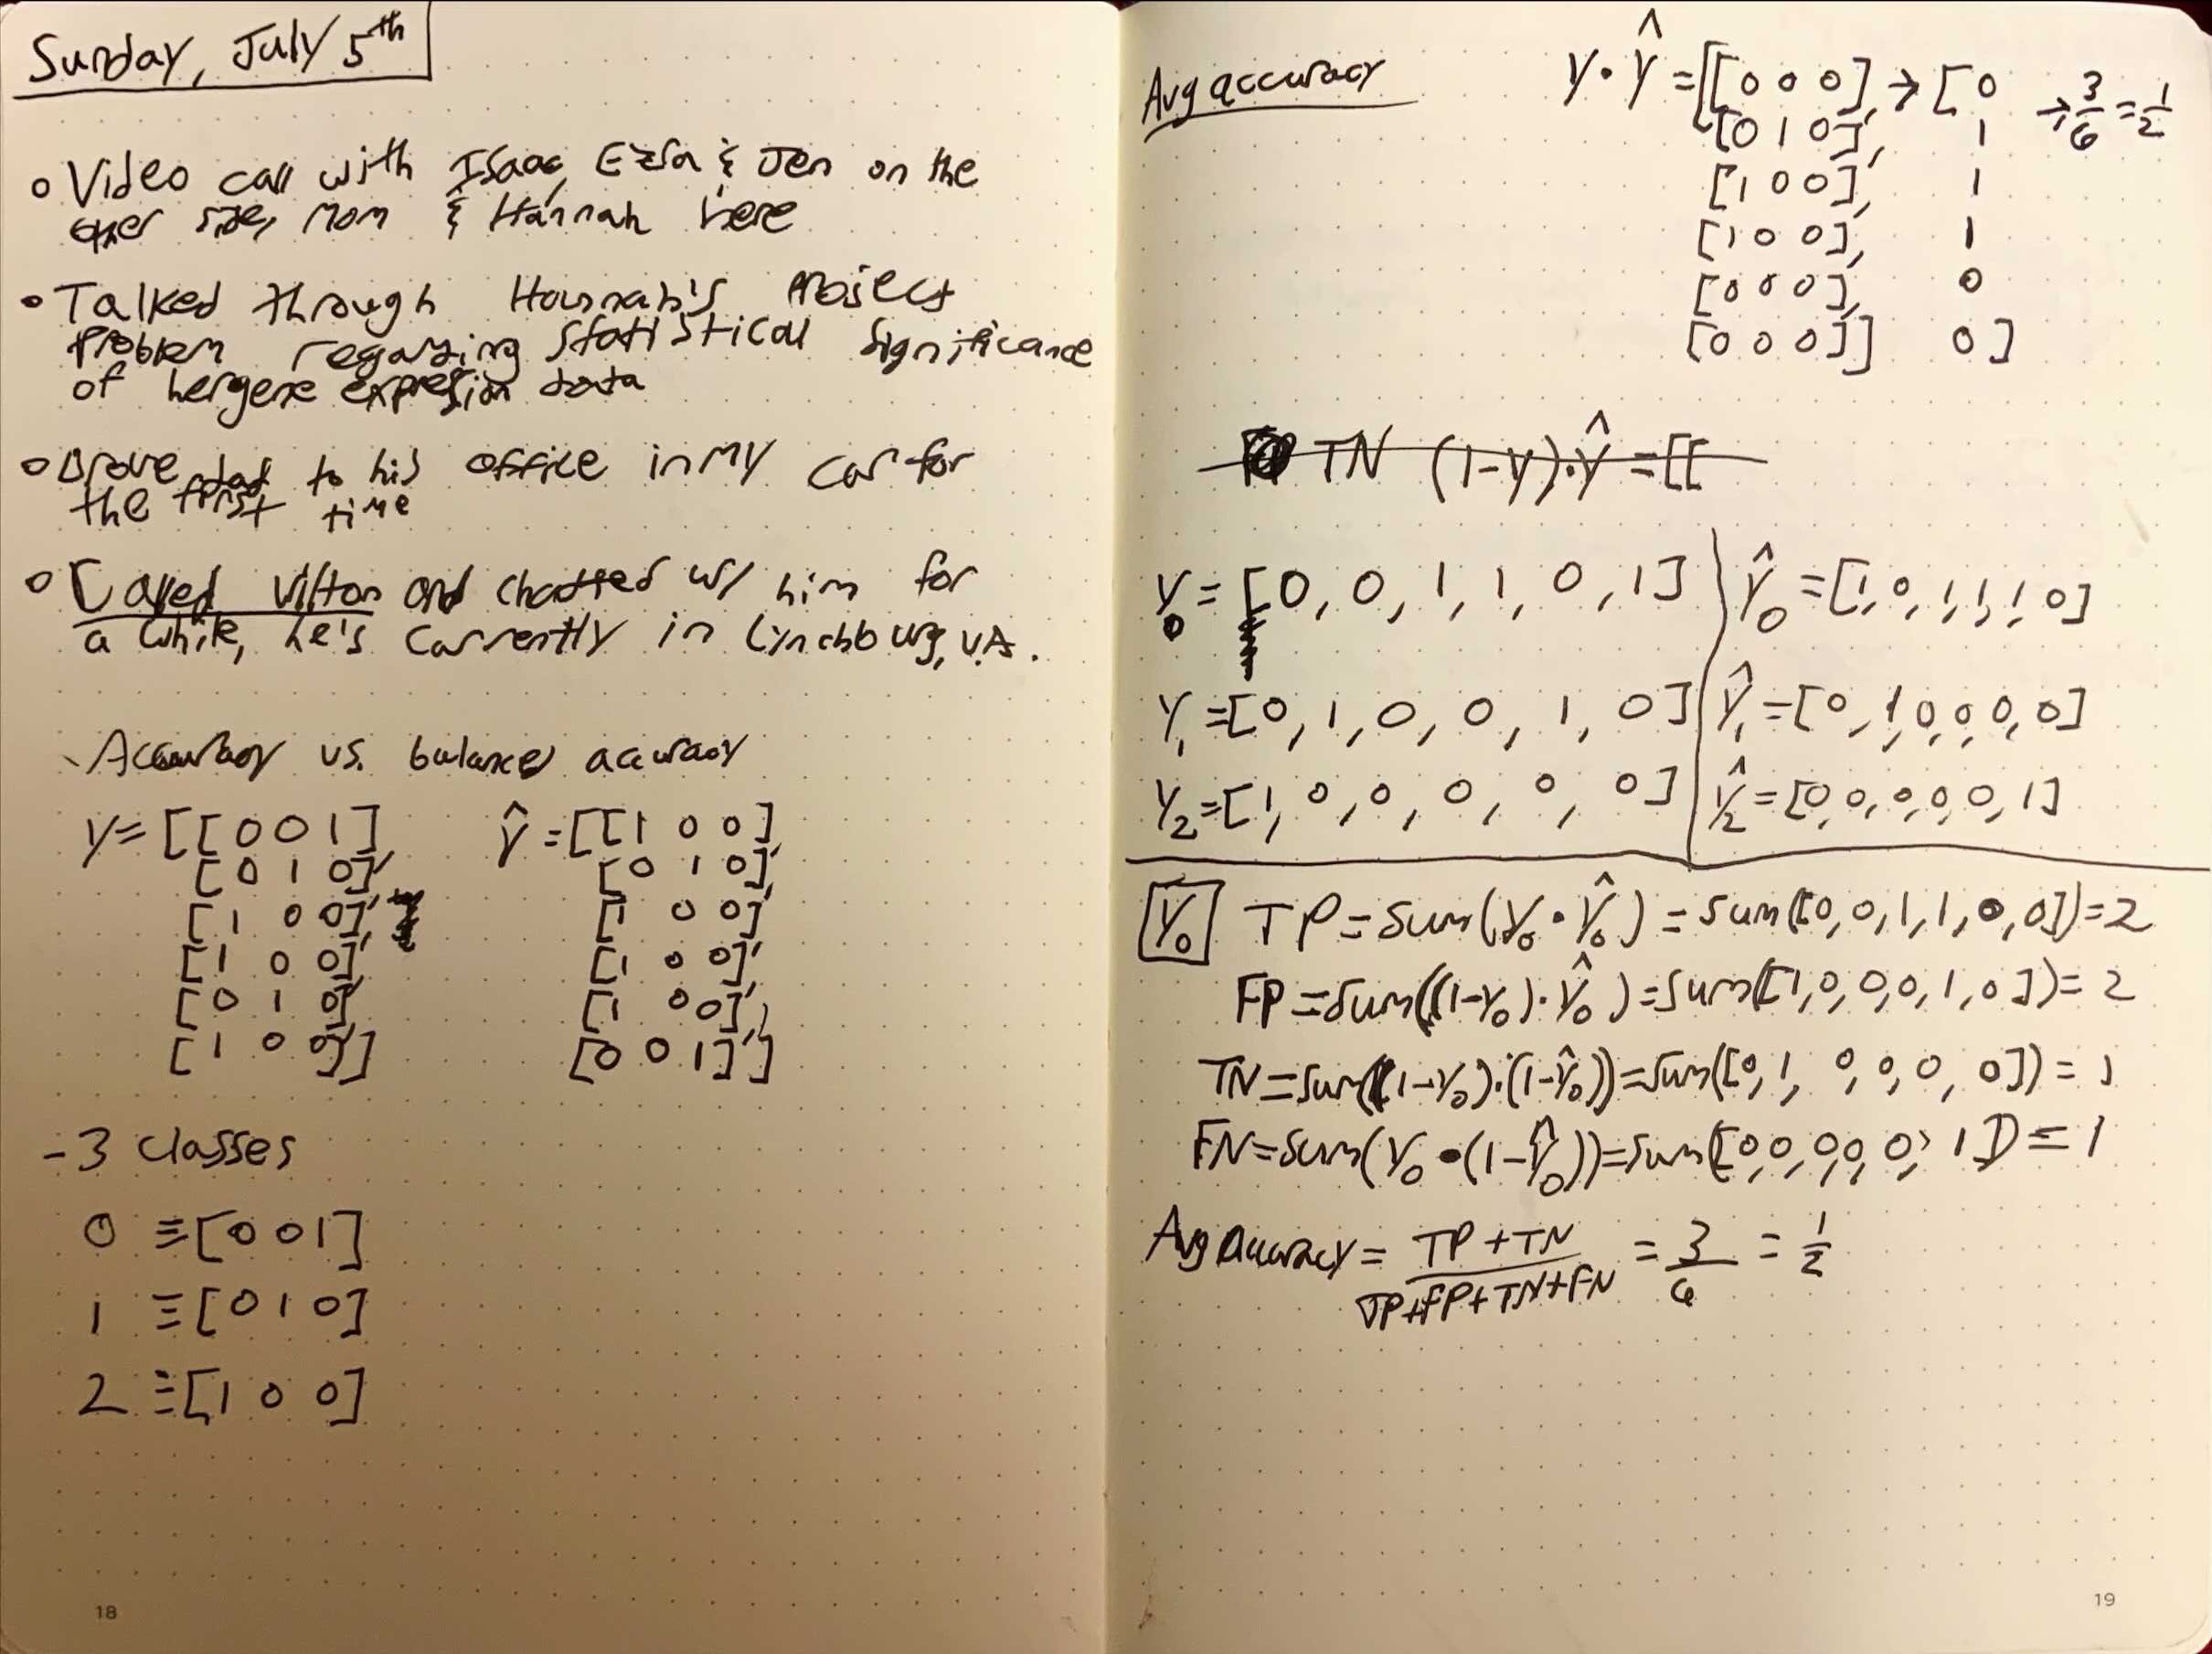 Sunday, July 5th
o Video call with Isaac, Ezra & Jen on the
other side, Mom & Hannah here
• Talked through Hannah's project
problem regarding statistical significance
of her gene expression data
o Drove dad to his office in my car for
the first time
o Called Wilton and chatted w/ him for
a while, he's currently in Lynchburg, V.A.
Accuracy vs. balance accuracy
Y = [[0 0 1] Ŷ = [[1 0 0],
[0 1 0], [0 1 0],
[1 0 0], [1 0 0],
[1 0 0], [1 0 0],
[0 1 0], [1 0 0],
[1 0 0]] [0 0 1]]
- 3 classes
0 ≡ [0 0 1]
1 ≡ [0 1 0]
2 ≡ [1 0 0]
18
Avg accuracy
Y • Ŷ = [[0 0 0], → [0 → 3/6 = 1/2
[0 1 0], 1
[1 0 0], 1
[1 0 0], 1
[0 0 0], 0
[0 0 0]] 0]
TN (1-Y)•Ŷ = [[
Y0 = [0, 0, 1, 1, 0, 1] Ŷ0 = [1, 0, 1, 1, 1, 0]
Y1 = [0, 1, 0, 0, 1, 0] Ŷ1 = [0, 1, 0, 0, 0, 0]
Y2 = [1, 0, 0, 0, 0, 0] Ŷ2 = [0, 0, 0, 0, 0, 1]
Y0 TP = sum(Y0 • Ŷ0) = sum([0, 0, 1, 1, 0, 0]) = 2
FP = sum((1-Y0) • Ŷ0) = sum([1, 0, 0, 0, 1, 0]) = 2
TN = sum((1-Y0) • (1-Ŷ0)) = sum([0, 1, 0, 0, 0, 0]) = 1
FN = sum(Y0 • (1-Ŷ0)) = sum([0, 0, 0, 0, 0, 1]) = 1
Avg accuracy = TP + TN / TP+FP+TN+FN = 3/6 = 1/2
19